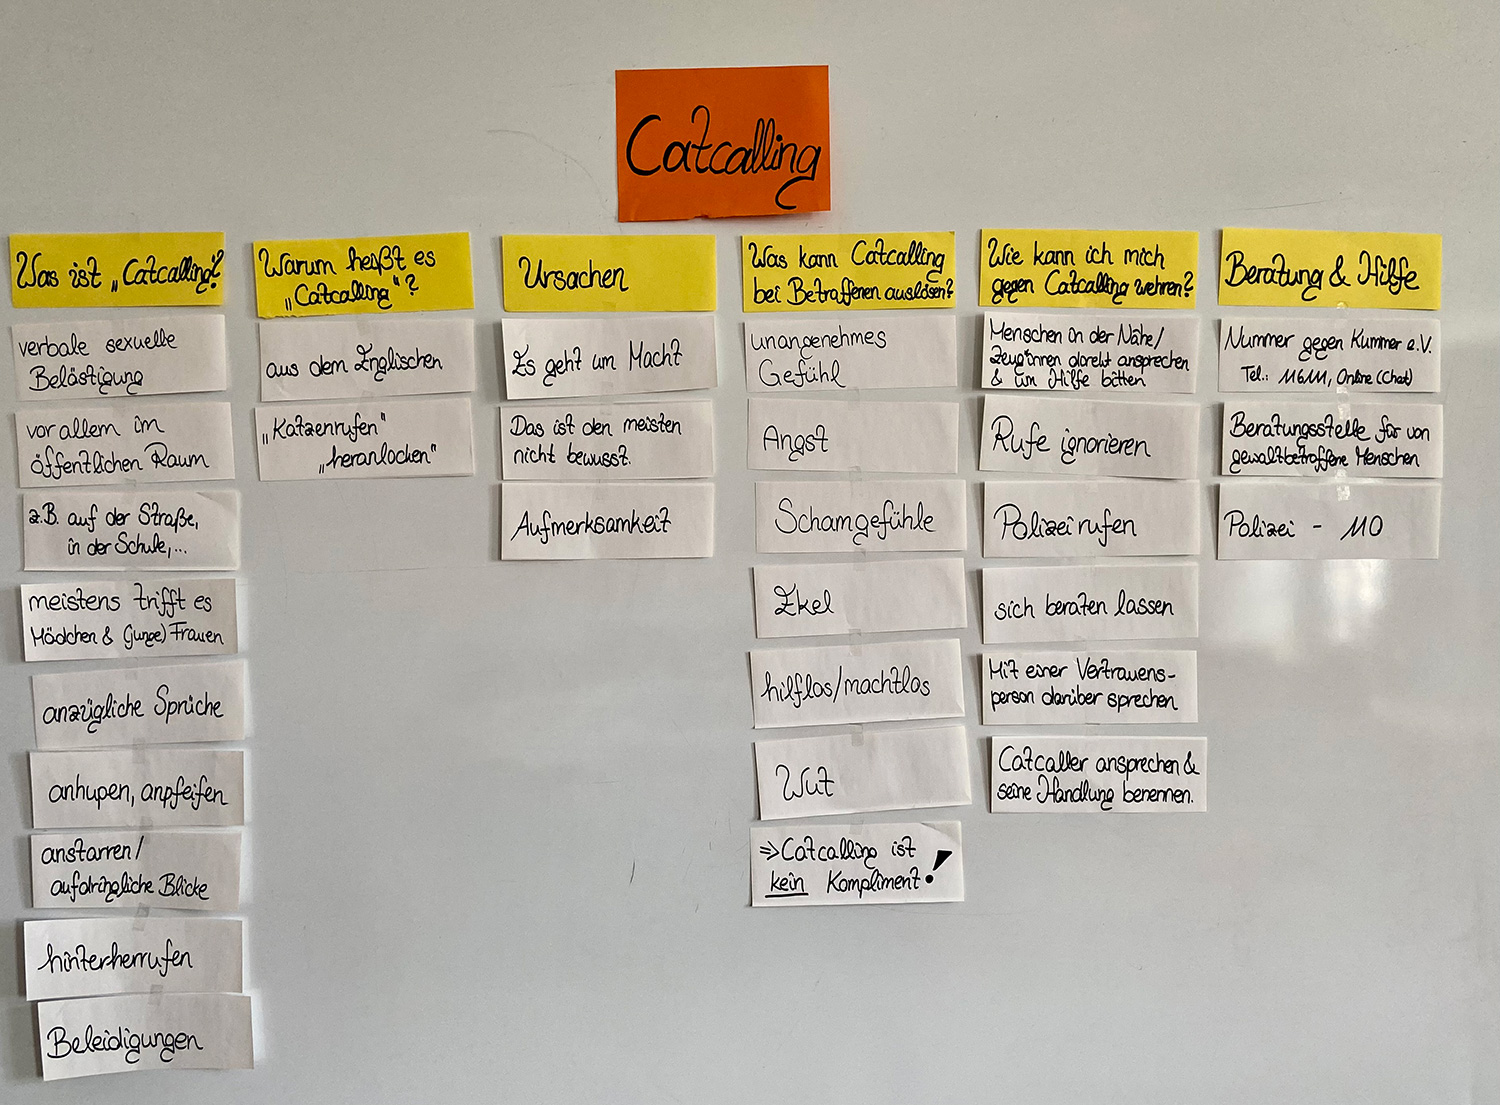 Catcalling
Was ist „Catcalling"?
verbale sexuelle
Belästigung
vor allem im
öffentlichen Raum
z.B. auf der Straße,
in der Schule,...
meistens trifft es
Mädchen & (junge) Frauen
anzügliche Sprüche
anhupen, anpfeifen
anstarren/
aufdringliche Blicke
hinterherrufen
Beleidigungen
Warum heißt es
„Catcalling"?
aus dem Englischen
„Katzenrufen"
„heranlocken"
Ursachen
Es geht um Macht
Das ist den meisten
nicht bewusst.
Aufmerksamkeit
Was kann Catcalling
bei Betroffenen auslösen?
unangenehmes
Gefühl
Angst
Schamgefühle
Ekel
hilflos/machtlos
Wut
⇒ Catcalling ist
kein Kompliment!
Wie kann ich mich
gegen Catcalling wehren?
Menschen in der Nähe/
Zeug*innen direkt ansprechen
& um Hilfe bitten
Rufe ignorieren
Polizei rufen
sich beraten lassen
Mit einer Vertrauens-
person darüber sprechen
Catcaller ansprechen &
seine Handlung benennen.
Beratung & Hilfe
Nummer gegen Kummer e.V.
Tel.: 116111, Online (Chat)
Beratungsstelle für von
gewaltbetroffene Menschen
Polizei - 110